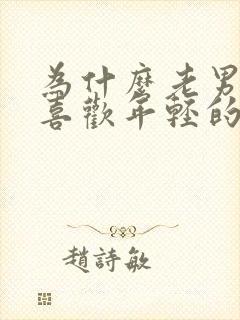 為什麼老男
喜歡年輕的
趙詩敏